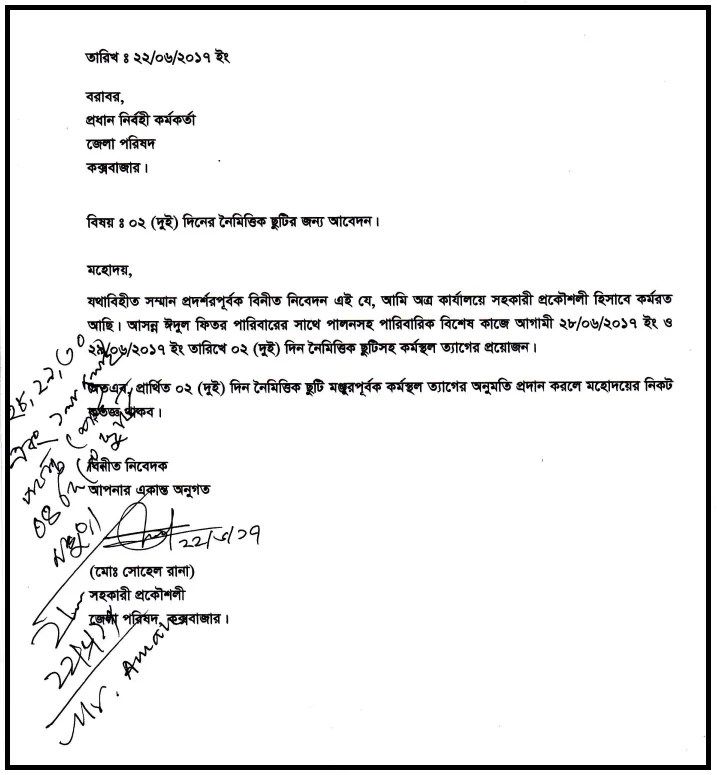 তারিখ ঃ ২২/০৬/২০১৭ ইং
বরাবর,
প্রধান নির্বহী কর্মকর্তা
জেলা পরিষদ
কক্সবাজার।
বিষয় ঃ ০২ (দুই) দিনের নৈমিত্তিক ছুটির জন্য আবেদন।
মহোদয়,
যথাবিহীত সম্মান প্রদর্শরপূর্বক বিনীত নিবেদন এই যে, আমি অত্র কার্যালয়ে সহকারী প্রকৌশলী হিসাবে কর্মরত
আছি। আসন্ন ঈদুল ফিতর পারিবারের সাথে পালনসহ পারিবারিক বিশেষ কাজে আগামী ২৮/০৬/২০১৭ ইং ও
২৯/০৬/২০১৭ ইং তারিখে ০২ (দুই) দিন নৈমিত্তিক ছুটিসহ কর্মস্থল ত্যাগের প্রয়োজন।
অতএব, প্রার্থিত ০২ (দুই) দিন নৈমিত্তিক ছুটি মঞ্জুরপূর্বক কর্মস্থল ত্যাগের অনুমতি প্রদান করলে মহোদয়ের নিকট
কৃতজ্ঞ থাকব।
২৮, ২৯, ৩০
এবং
বিনীত নিবেদক
আপনার একান্ত অনুগত
২২/৬/১৭
(মোঃ সোহেল রানা)
সহকারী প্রকৌশলী
জেলা পরিষদ, কক্সবাজার।
Mr. Aman